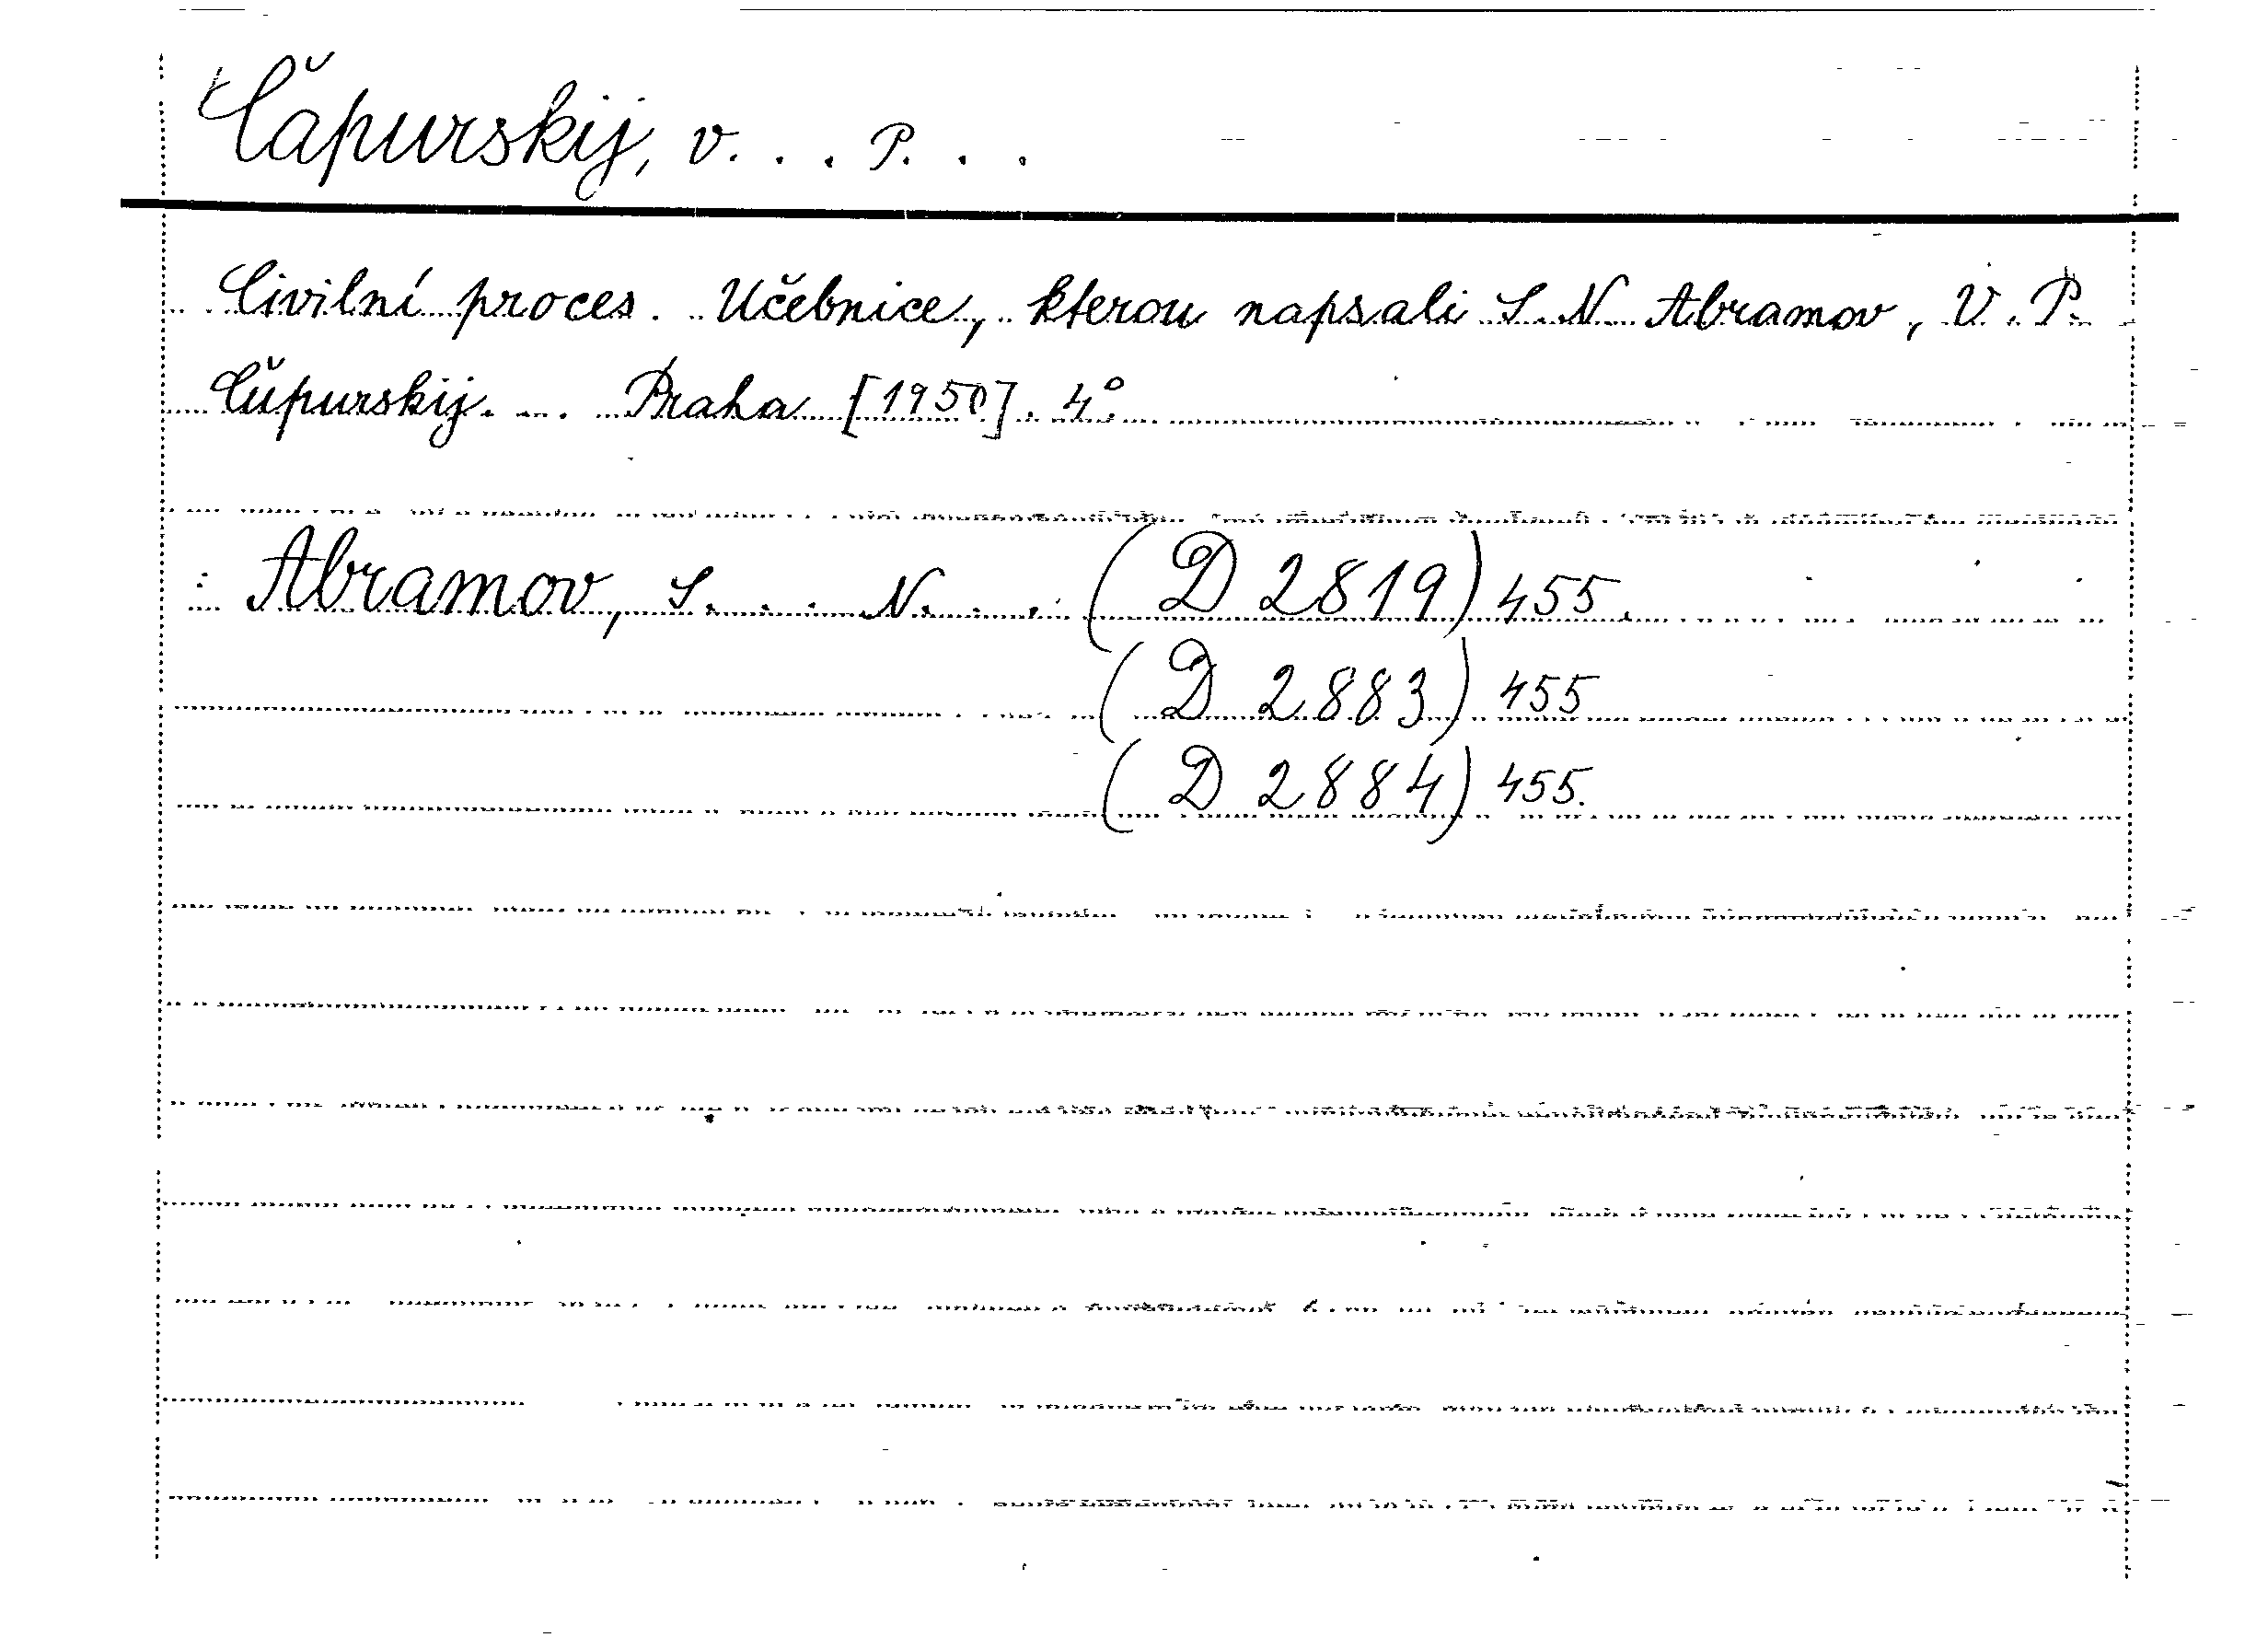 Čapurskij, V. . . P. . .
Civilní proces. Učebnice, kterou napsali S. N. Abramov, V. P.
Čapurskij. .. Praha [1950]. 4°.
: Abramov, S. . . N. . . (D 2819) 455.
(D 2883) 455
(D 2884) 455.